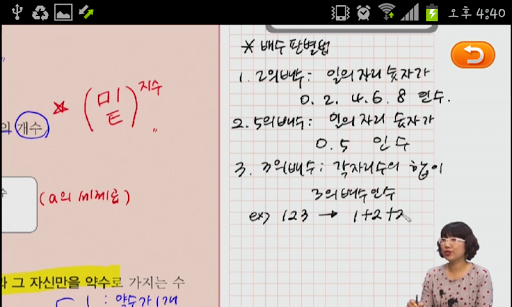 오후 4:40
* 배수판별법
1. 2의배수: 일의자리 숫자가
0. 2. 4. 6. 8 인수.
2. 5의배수: 일의자리 숫자가
0. 5 인수
3. 3의배수: 각자리수의 합이
3의배수인수
ex> 123 → 1+2+3
* (밑)지수
의 개수
(a의 세제곱)
그 자신만을 약수로 가지는 수
1 : 약수가 1개